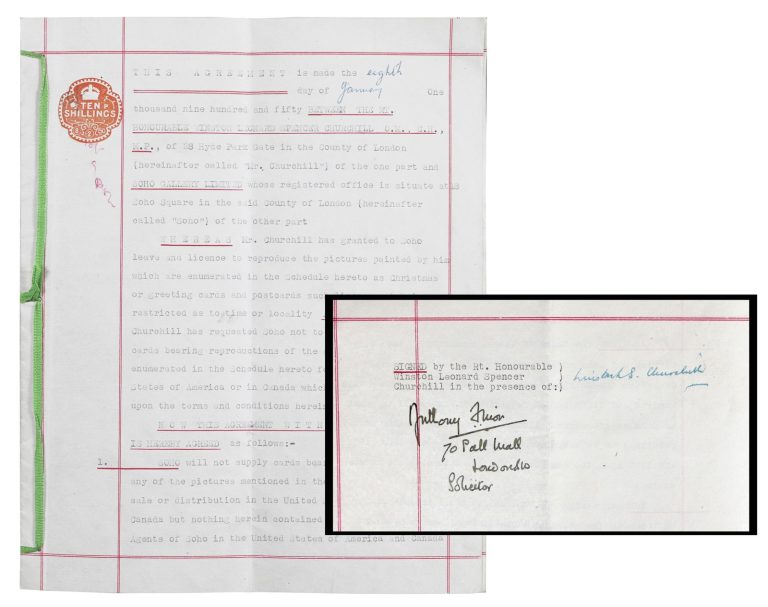 THIS AGREEMENT is made the eighth
day of January One
thousand nine hundred and fifty BETWEEN THE RT.
HONOURABLE WINSTON LEONARD SPENCER CHURCHILL O.M., C.H.,
M.P., of 28 Hyde Park Gate in the County of London
(hereinafter called "Mr. Churchill") of the one part and
SOHO GALLERY LIMITED whose registered office is situate at 18
Soho Square in the said County of London (hereinafter
called "Soho") of the other part
WHEREAS Mr. Churchill has granted to Soho
leave and licence to reproduce the pictures painted by him
which are enumerated in the Schedule hereto as Christmas
or greeting cards and postcards
restricted as to time or locality
Churchill has requested Soho not to
cards bearing reproductions of the
enumerated in the Schedule hereto
States of America or in Canada which
upon the terms and conditions
NOW THIS AGREEMENT
IS HEREBY AGREED as follows:-
1. SOHO will not supply cards
any of the pictures mentioned in the
sale or distribution in the United
Canada but nothing herein contained
Agents of Soho in the United States of America and Canada
TEN
SHILLINGS
SIGNED by the Rt. Honourable )
Winston Leonard Spencer )
Churchill in the presence of:)
Winston S. Churchill
Anthony
70 Pall Mall
London SW
Solicitor